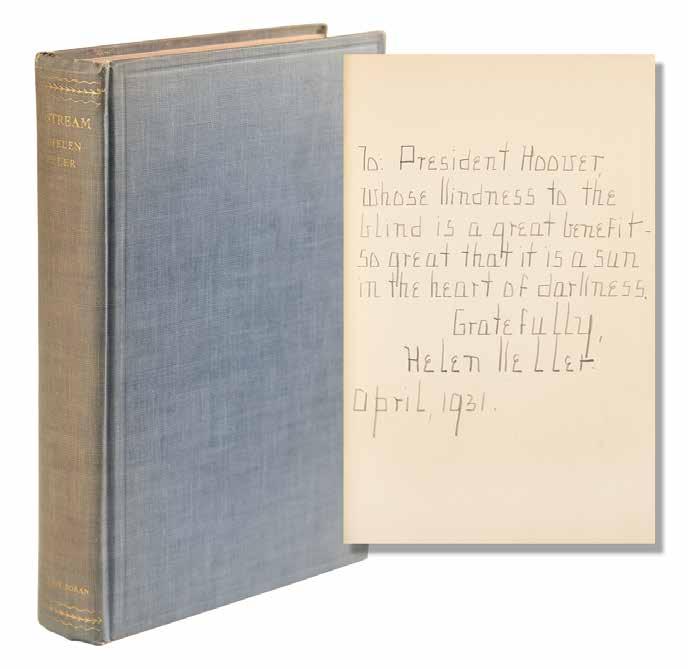 STREAM
HELEN
DORAN
To: President Hoover,
whose kindness to the
blind is a great benefit -
so great that it is a sun
in the heart of darkness.
Gratefully,
Helen Keller.
April, 1931.